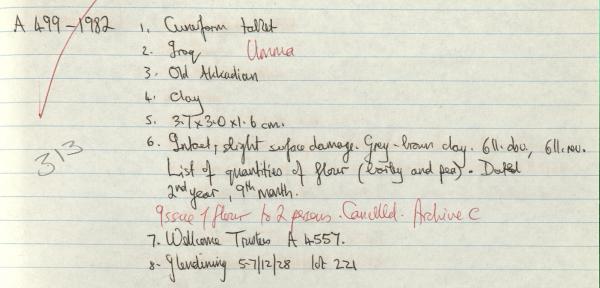 A 499-1982 1. Cuneiform tablet
2. Iraq Umma
3. Old Akkadian
4. Clay
5. 3.7 x 3.0 x 1.6 cm.
313
6. Intact, slight surface damage. Grey-brown clay. 6ll. obv., 6ll. rev.
List of quantities of flour (barley and pea). Dated
2nd year, 9th month.
Issue of flour to 2 persons. Cancelled. Archive C
7. Wellcome Trustees A 4557.
8. Glendining 5-7/12/28 lot 221